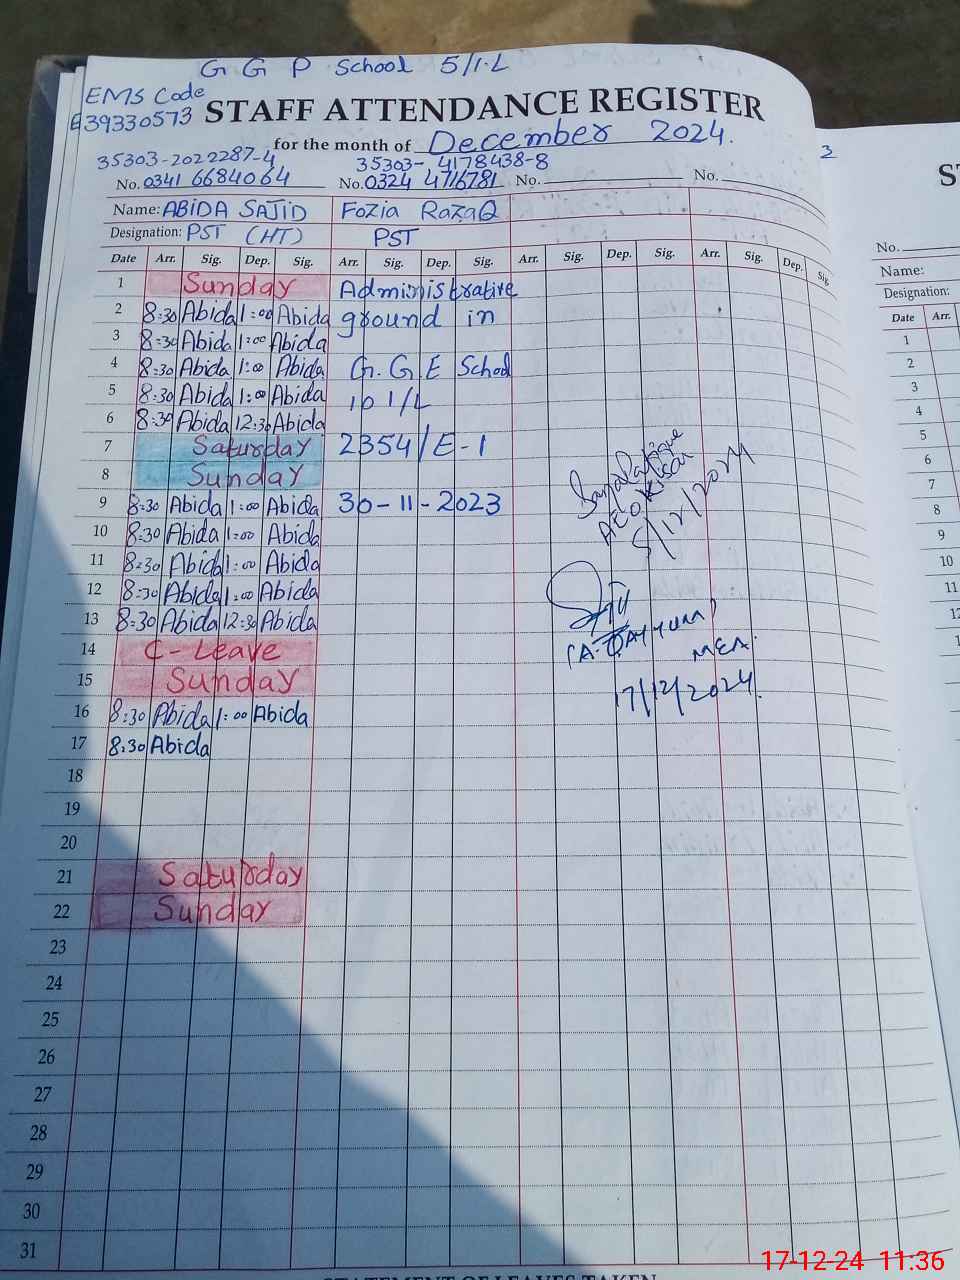 G G P School 5/1.L
EMS Code
39330573
STAFF ATTENDANCE REGISTER
for the month of December 2024.
35303-2022287-4 35303-4178438-8 2
No. 0341 6684064 No. 0324 4716781 No. No.
Name: ABIDA SAJID Fozia RazaQ
Designation: PST (HT) PST
Date Arr. Sig. Dep. Sig. Arr. Sig. Dep. Sig. Arr. Sig. Dep. Sig. Arr. Sig. Dep. Sig
1 Sunday Administrative
2 8:30 Abida 1:00 Abida ground in
3 8:30 Abida 1:00 Abida
4 8:30 Abida 1:00 Abida G.G E School
5 8:30 Abida 1:00 Abida 10 1/L
6 8:30 Abida 12:30 Abida
7 Saturday 2354/E-1
8 Sunday
9 8:30 Abida 1:00 Abida 30-11-2023
10 8:30 Abida 1:00 Abida
11 8:30 Abida 1:00 Abida
12 8:30 Abida 1:00 Abida
13 8:30 Abida 12:30 Abida
14 C-Leave
15 Sunday
16 8:30 Abida 1:00 Abida
17 8:30 Abida
18
19
20
21 Saturday
22 Sunday
23
24
25
26
27
28
29
30
31
5/12/2024
(A.QAYYUM)
MEA.
17/12/2024.
STATEMENT OF LEAVES TAKEN
No.
Name:
Designation:
Date Arr.
1
2
3
4
5
6
7
8
9
10
11
12
13
17-12-24 11:36